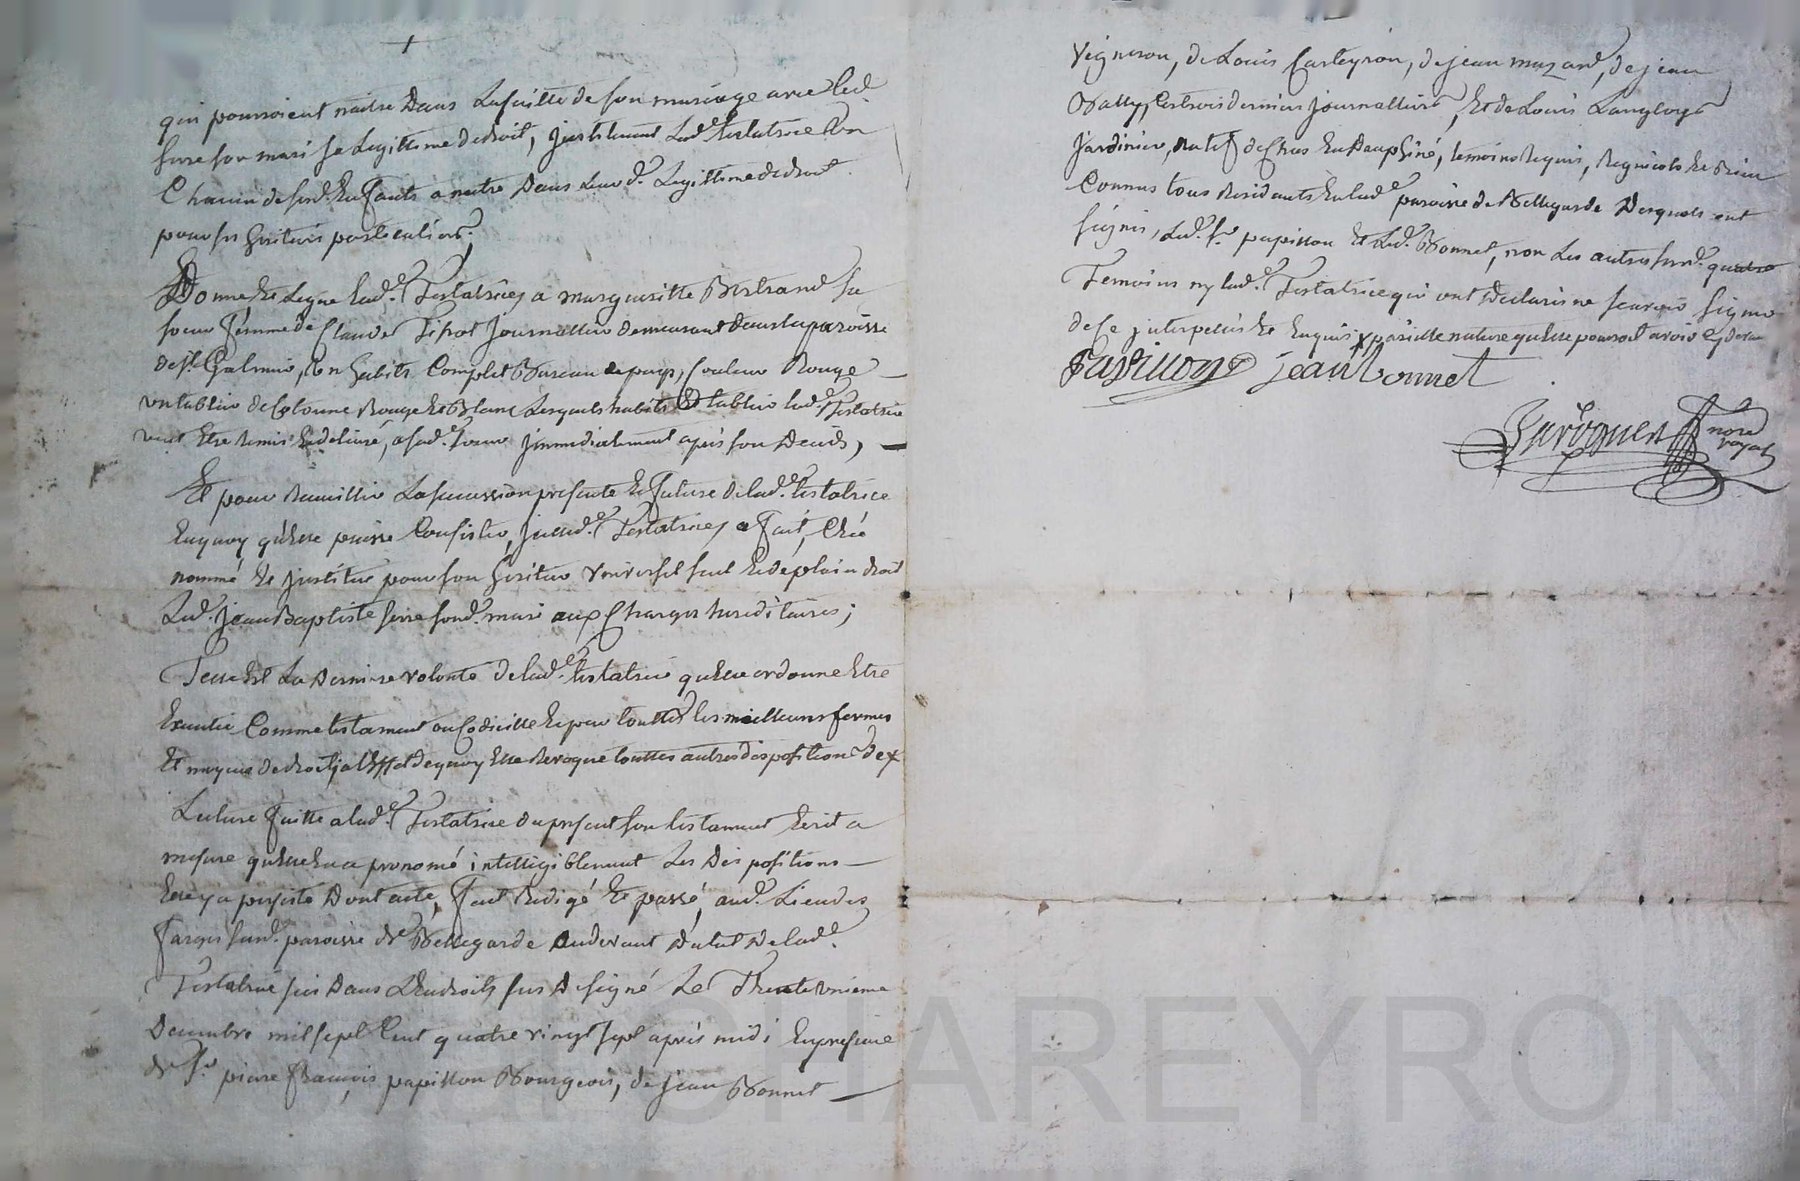 qui pourroient naitre dans la suitte de son mariage avec led.
serre son mari sa legittime de droit, justituant lad.e testatrice un
Chacun de sesd. Enfants a naitre dans leurd. Legittime de droit
pour ses heritiers particuliers;
Donne Et Legue lad.e Testatrice a margueritte Bertrand sa
soeur femme de Claude Journallier demeurant dans la paroisse
de st Galmier, un habits Complet Bureau de pays, Couleur Rouge
un tablier de Cotonne Rouge Et Blanc Lesquels habits Et tablier lad.e Testatrice
veut Etre Remis Et delivré, a sad.e soeur jmmediatement après son Decés,
Et pour Recuillir La sucession presente Et future de lad.e testatrice
En quoy qu'elle puisse Consister, jcelled.e Testatrice a fait, Créé
nommé Et justitué pour son heritier Universel seul Et de plain droit
Led. Jean Baptiste serre sond. mari aux Charges hereditaires;
Telle Est La Derniere volonté de lad.e testatrice qu'elle ordonne Etre
Executée Comme testament ou Codicille Et pour touttes les meilleurs formes
Et moyens de droit, a l'Effet de quoy Elle Revoque touttes autres dispositions de x
Lecture faitte a lad.e Testatrice du present son testament Ecrit a
mesure qu'elle En a prononcé intelligiblement Les Dispositions
Elle y a persisté Dont acte, fait Redigé Et passé, aud. Lieu des
farges susd. paroisse de Bellegarde Audevant de lad.e
Testatrice sis Dans L'Endroits sus Designé Le Trente unieme
Decembre mil sept Cent quatre vingt sept après midi En presence
de sr. pierre francois papillon Bourgeois, de jean Bonnet
Vigneron, de Louis Carteyron, de jean mazard, de jean
Batty, Les trois derniers journalliers, Et de Louis Langloys
Jardinier, natif de en Dauphiné, temoins Requis, Regnicols Et Bien
Connus tous Residants En lad.e paroisse de Bellegarde Desquels ont
signés, led. sr. papillon Et led. Bonnet, non Les autres susd. quatre
Temoins ny lad.e Testatrice qui ont Declarés ne scavoir signer
de ce jnterpellés Et Enquis x pareille nature qu'elle pourroit avoir cy devant
Papillon jean bonnet
nore
royal
CHAREYRON